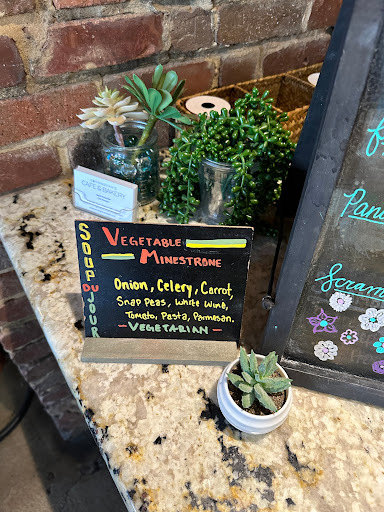 CAFE & BAKERY
SOUP DU JOUR
VEGETABLE
MINESTRONE
Onion, Celery, Carrot,
Snap Peas, White Wine,
Tomato, Pasta, Parmesan.
- VEGETARIAN -
Pan
Scram